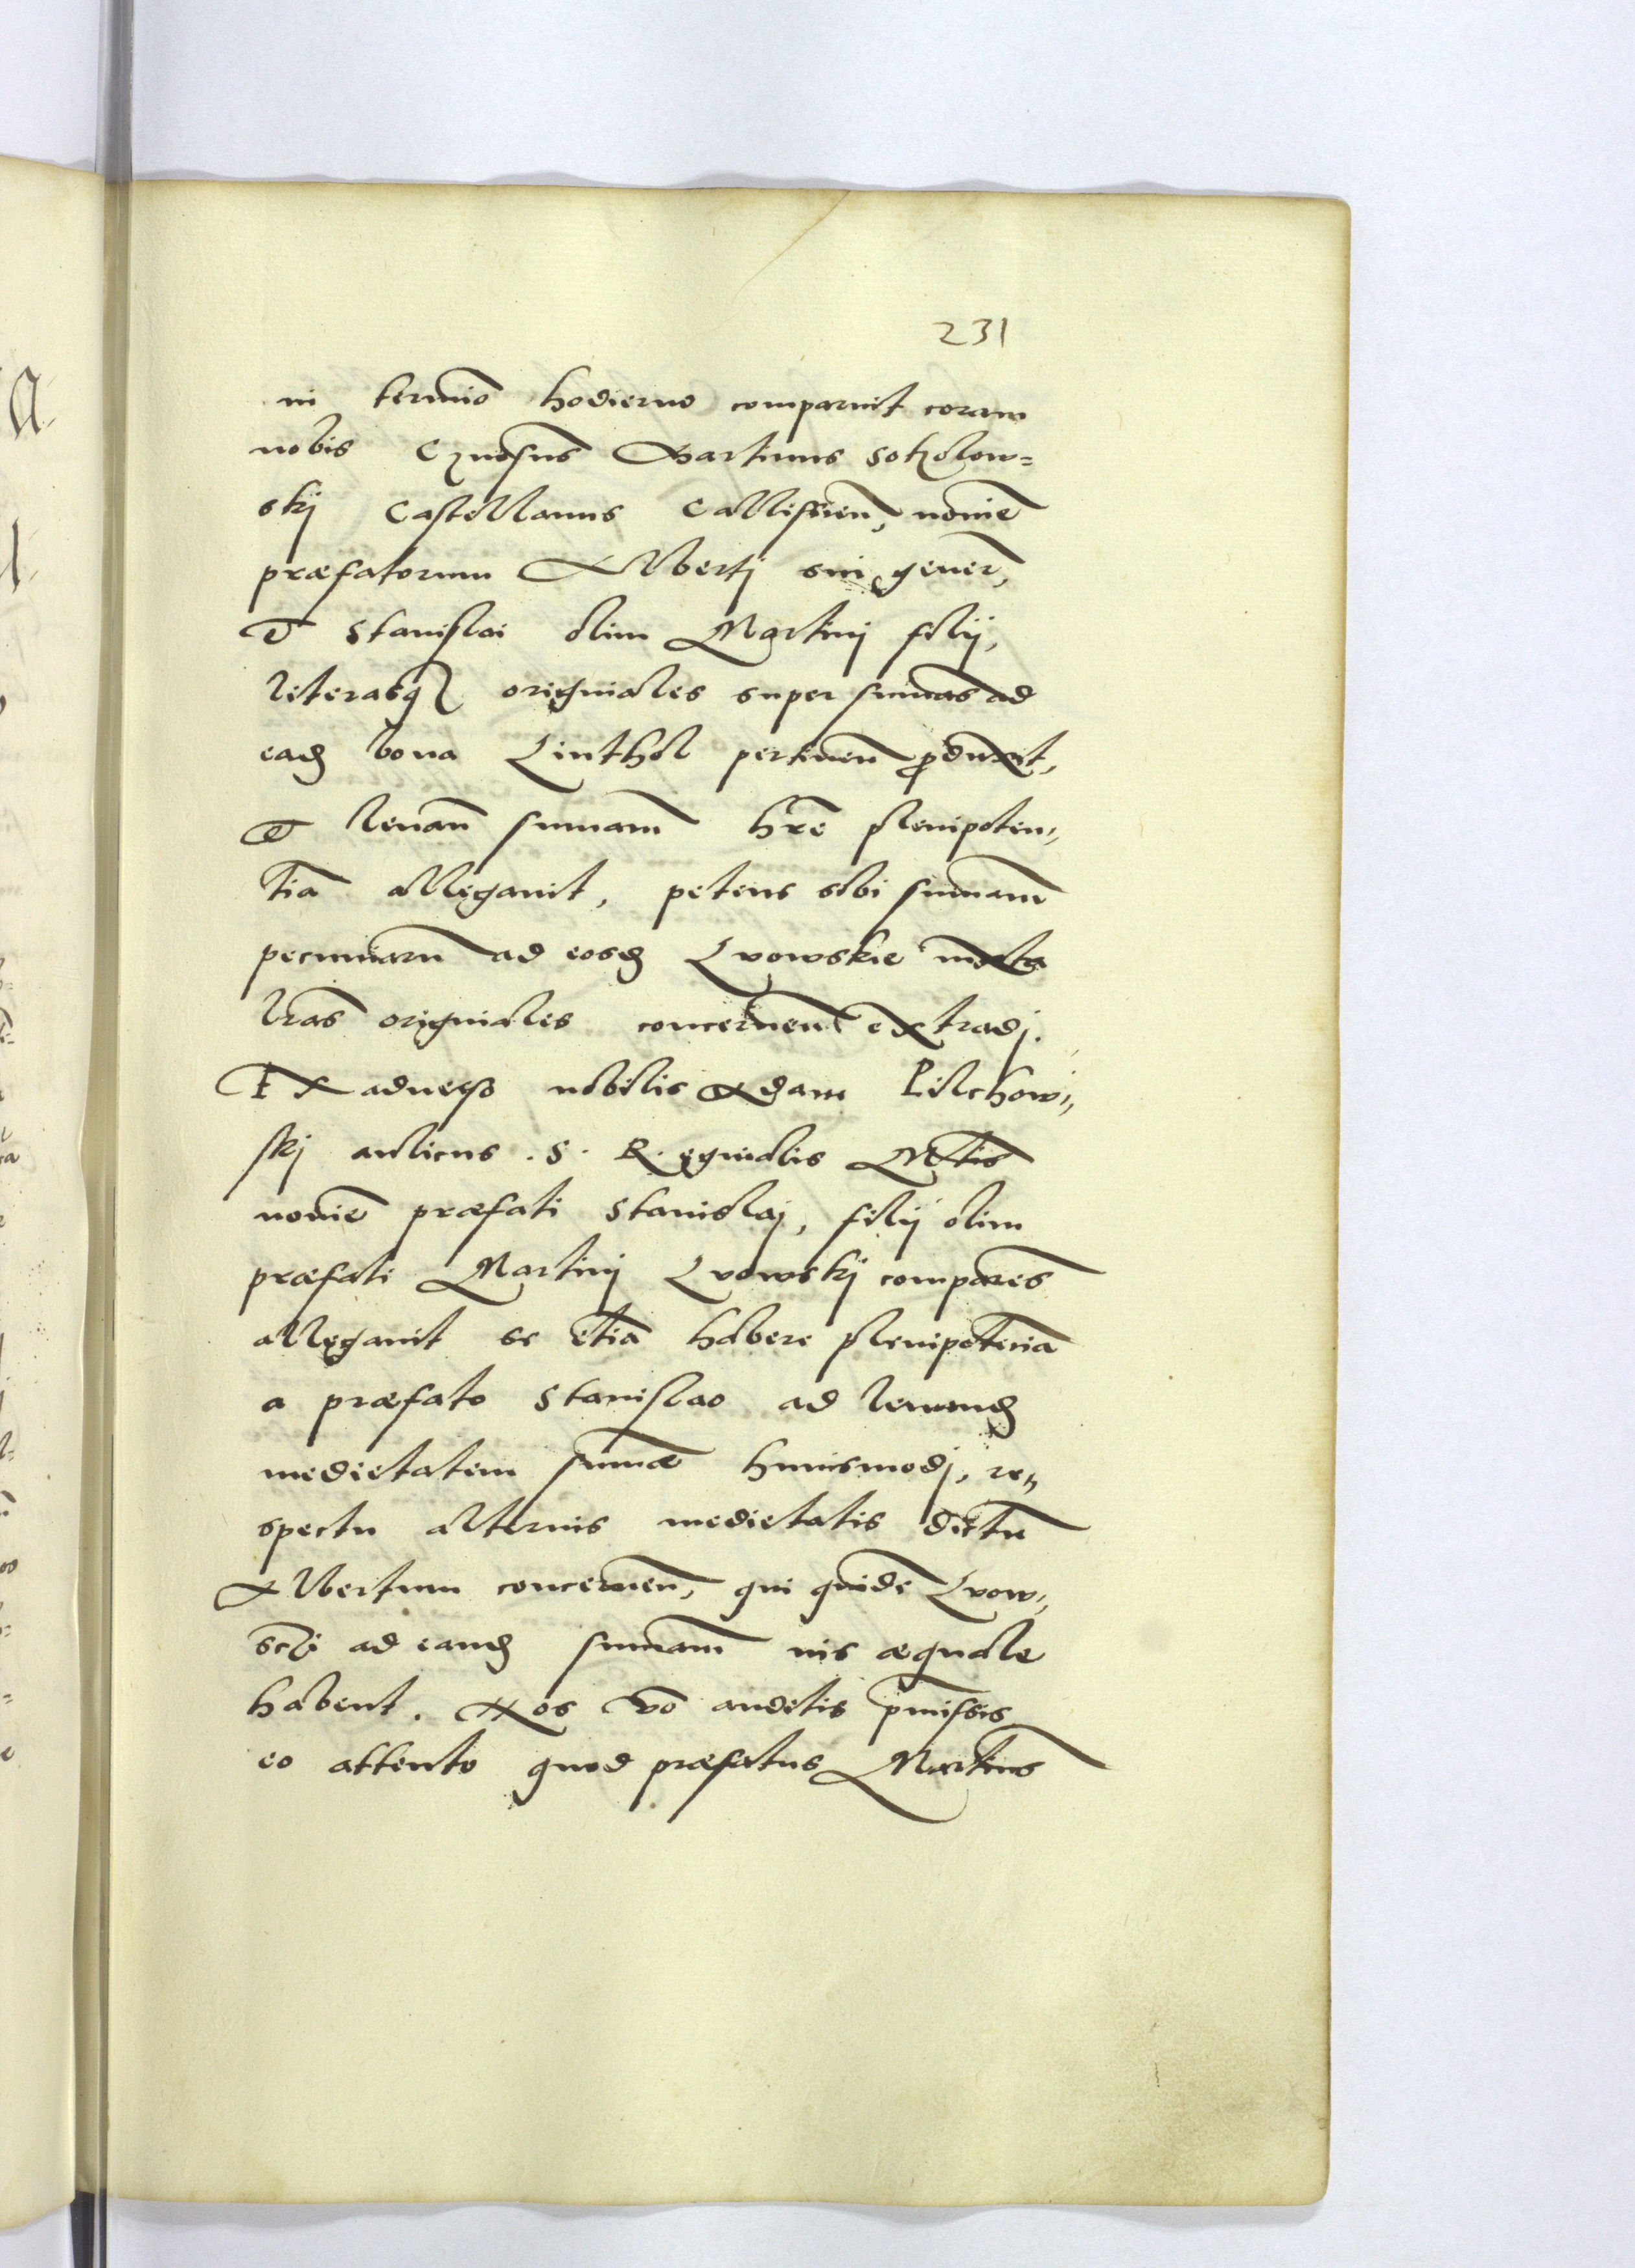 231
in termīo hodierno comparuit coram
nobis Gnosus Martinus Sokolow=
skj Castellanus Callissien, nomīe
præfatorum Albertj sui generi,
et Stanislai olim Martinj filij,
literasq originales super sumas ad
eadem bona Linthol pertinen produxit,
et levan sumam hre plenipoten„
tiā allegavit, petens sibi sumam
pecuniaru ad eosdem Lvowskie iuxta
lras originales concernen extradj.
Ex adverso nobilis Adam Pilchow„
skj aulicus S. Reginalis Mtis
nomīe præfati Stanislaj, filij olim
præfati Martinj Lvowskj compares
allegavit se etiā habere plenipotenciā
a præfato Stanislao ad levandam
medietatem sumæ huiusmodj, re„
spectu alterius medietatis dictu
Albertum concernen, qui quidē Lvow„
scij ad eandem sumam ius æquale
habent. Nos vo auditis pmissis
eo attento quod præfatus Martinus